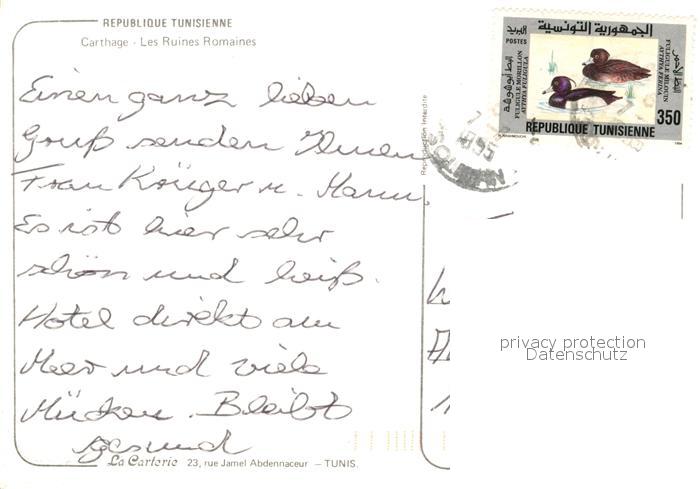 REPUBLIQUE TUNISIENNE
Carthage - Les Ruines Romaines
Einen ganz lieben
Gruß senden Ihnen
Frau Krüger u. Mann.
Es ist hier sehr
schön und heiß.
Hotel direkt am
Meer und viele
Mücken. Bleibt
gesund
La Carterie 23, rue Jamel Abdennaceur – TUNIS.
Reproduction Interdite
الجمهورية التونسية
POSTES
FULIGULE MORILLON
AYTHYA FULIGULA
FULIGULE MILOUIN
AYTHYA FERINA
350
REPUBLIQUE TUNISIENNE
privacy protection
Datenschutz